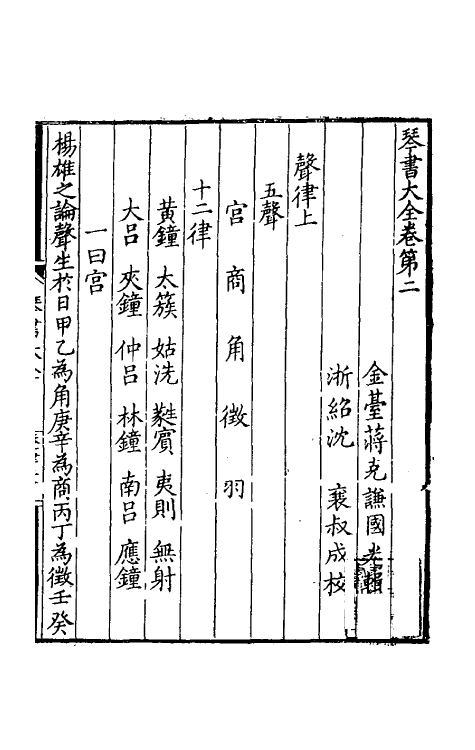 琴書大全卷第二
金臺蔣克謙國光輯
浙紹沈襄叔成校
聲律上
五聲
宮 商 角 徵 羽
十二律
黃鐘 太簇 姑洗 蕤賓 夷則 無射
大呂 夾鐘 仲呂 林鐘 南呂 應鐘
一曰宮
楊雄之論聲生於日甲乙為角庚辛為商丙丁為徵壬癸
琴書大全